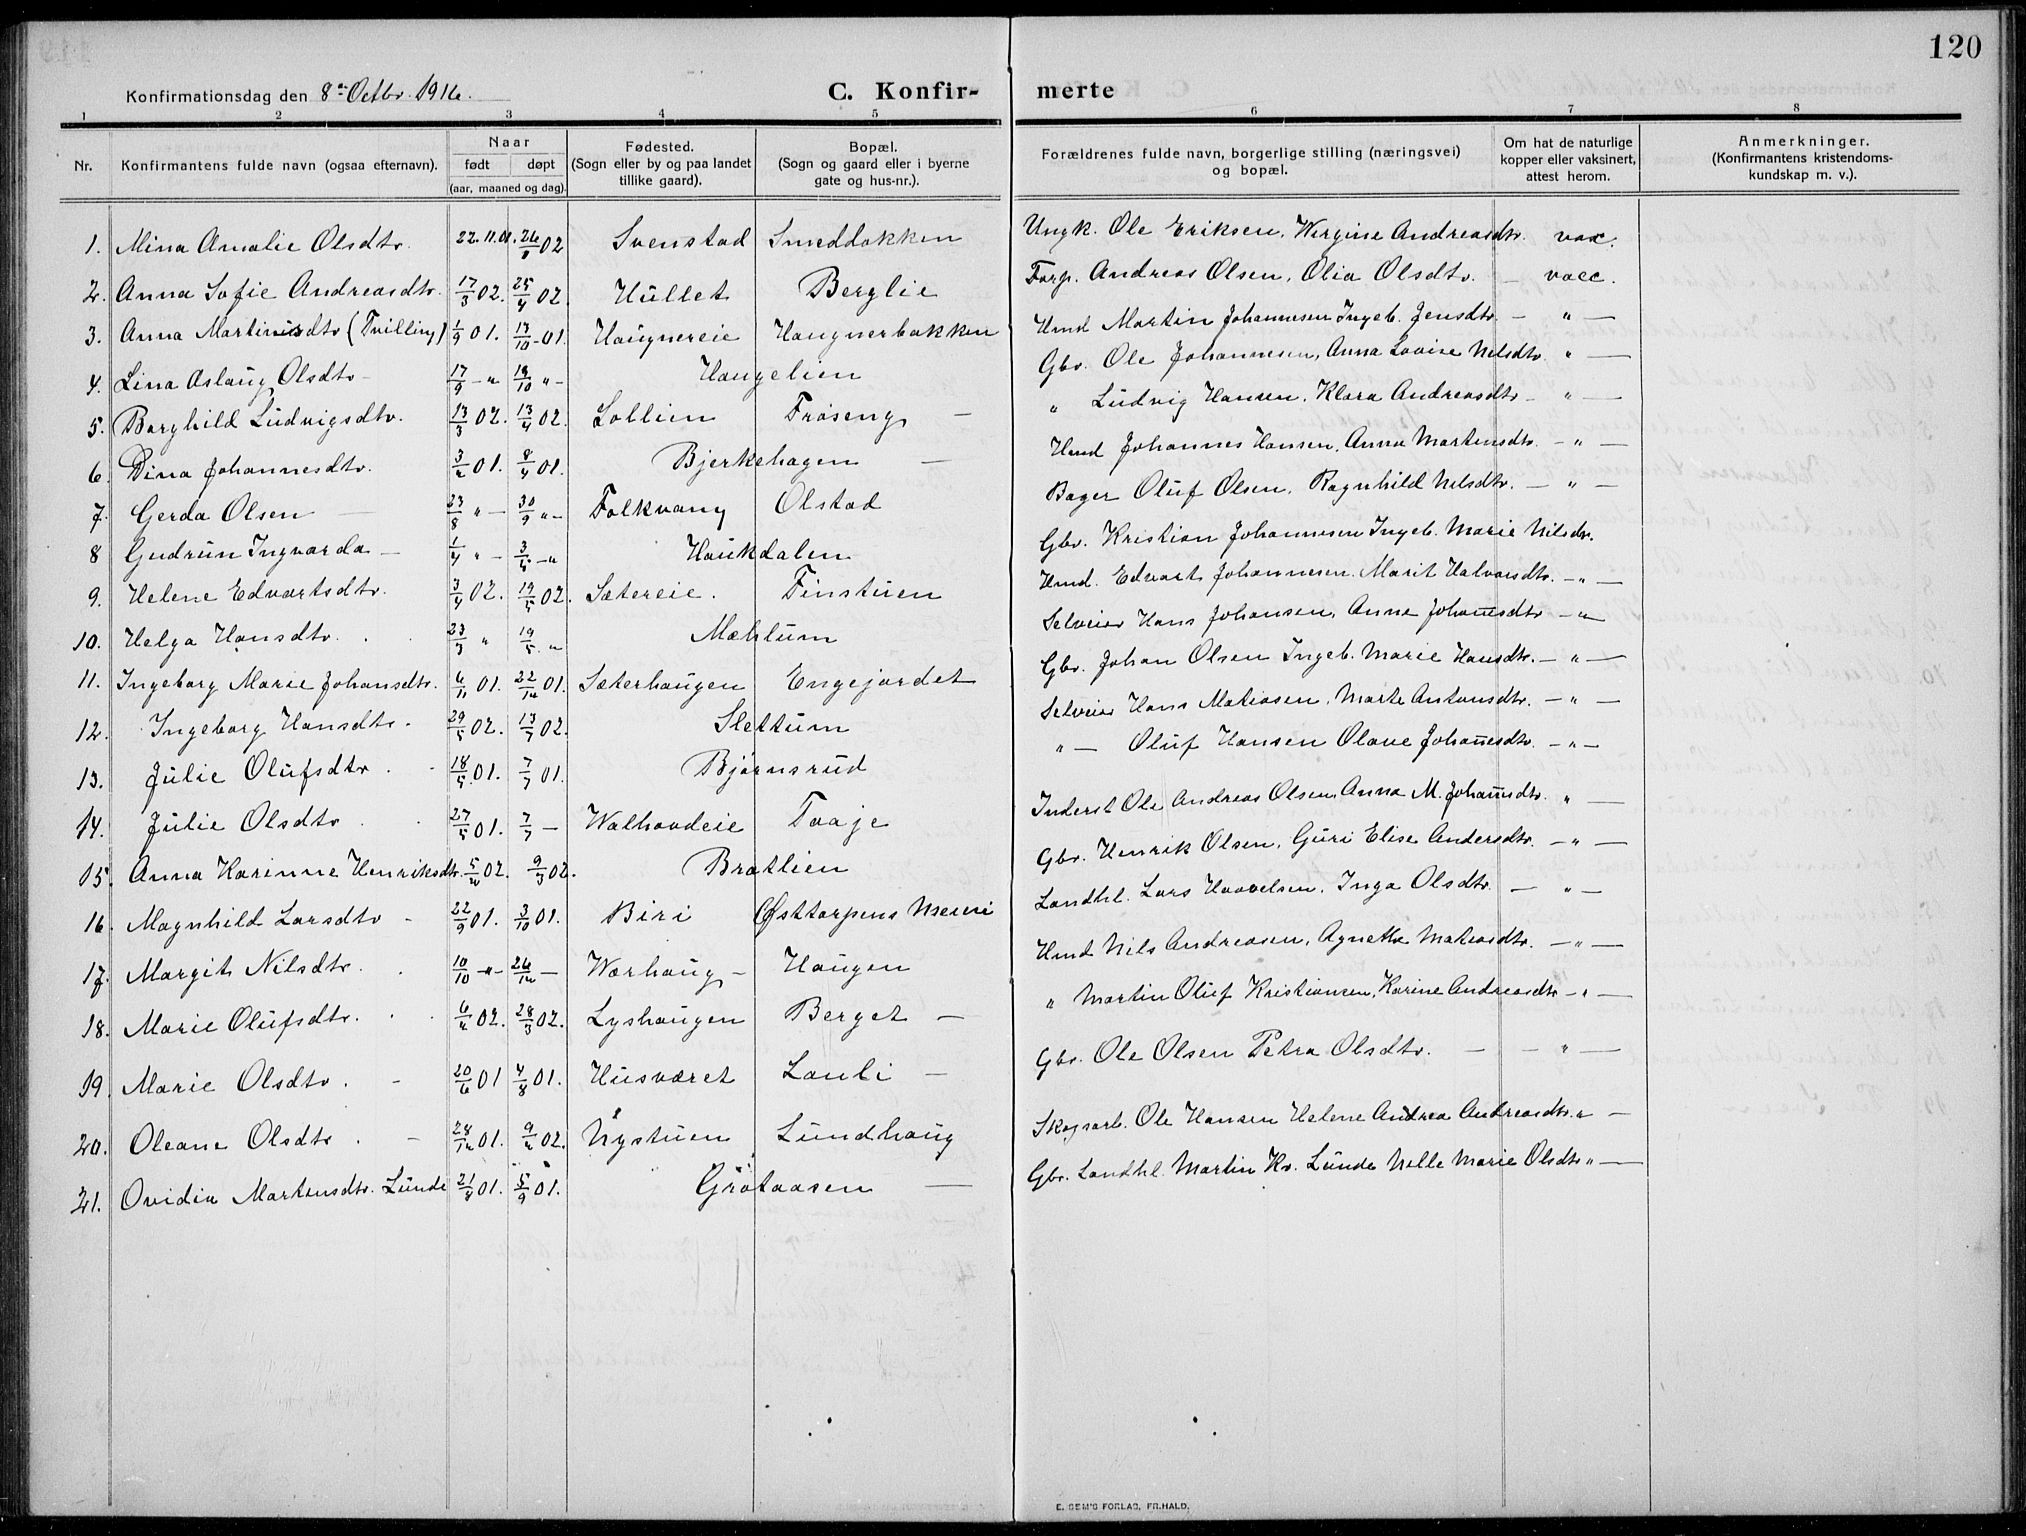 120
Konfirmationsdag den 8de Octbr. 1916.
C. Konfir-
merte
1 2 3 4 5 6 7 8
Nr. Konfirmantens fulde navn (ogsaa efternavn). Naar født døpt (aar, maaned og dag). Fødested. (Sogn eller by og paa landet tillike gaard). Bopæl. (Sogn og gaard eller i byerne gate og hus-nr.). Forældrenes fulde navn, borgerlige stilling (næringsvei) og bopæl. Om hat de naturlige kopper eller vaksinert, attest herom. Anmerkninger. (Konfirmantens kristendoms-kundskap m. v.).
1. Mina Amalie Olsdtr. 22.11.01. 02 Svenstad Smeddokken Ungk. Ole Eriksen, Wergine Andreasdtr. vac.
2. Anna Sofie Andreasdtr. 17/3 02. 25/4 02. Hullet Berglie Forp. Andreas Olsen, Olia Olsdtr. — vacc.
3. Anna Martinusdtr (Tvilling) 1/9 01. 13/10 - 01. Haugnereie Haugnerbakken Hmd Martin Johannesen Ingeb. Jensdtr. — " —
4. Lina Aslaug Olsdtr — 17/9 — " 18/10 " — Haugelien Gbr. Ole Johannesen, Anna Lovise Nilsdtr. " —
5. Borghild Ludvigsdtr. 13/3 02. 13/4 02. Sollien Frøseng — " Ludvig Hansen, Klara Andreasdtr — " —
6. Dina Johannesdtr. 3/2 01. 8/4 01. Bjerkehagen — Hmd Johannes Hansen, Anna Martensdtr. — " —
7. Gerda Olsen — 23/8 " — 30/9 " — Folkvang Olstad Bager Oluf Olsen, Ragnhild Nilsdtr. — " —
8 Gudrun Ingvarda — 1/4 " — 3/5 — " Haukdalen Gbr. Kristian Johannesen Ingeb. Marie Nilsdr.
9. Helene Edvartsdtr. 3/4 02. 19/5 02. Sætereie. Finstuen Hmd. Edvart Johannesen. Marit Halvorsdtr. — " —
10. Helga Hansdtr. 23/3 " 19/5 " Mæhlum Selveier Hans Johansen, Anne Johanesdtr — "
11. Ingeborg Marie Johansdtr. 6/11 01. 22/12 01. Sæterhaugen Engejordet Gbr. Johan Olsen Ingeb. Marie Hansdtr. — " —
12. Ingeborg Hansdtr. 29/5 02. 13/7 02. Slettum Selveier Hans Matiasen, Marte Antonsdtr. — " —
13. Julie Olufsdtr 18/5 01. 7/7 01. Bjørnsrud " — Oluf Hansen Olave Johanesdtr. — " —
14. Julie Olsdtr 27/5 01. 7/7 — Walhovdeie Taaje Inderst Ole Andreas Olsen, Anna M. Johannsdtr. " —
15. Anna Karinne Henriksdtr. 5/2 02. 9/3 02. Brætlien Gbr. Henrik Olsen, Guri Elise Andersdtr. — " —
16. Magnhild Larsdtr 22/9 01. 3/10 01. Biri Østtorpens Meieri Landhl. Lars Haavelsen, Inga Olsdtr. — " —
17. Margit Nilsdtr. 10/10 — " — 26/12 — Wærhaug — Haugen Hmd Nils Andreasen, Agnethe Matiasdtr. — " —
18. Marie Olufsdtr. 6/2 02. 28/3 02. Lyshaugen Berget — " Martin Oluf Kristiansen, Karine Andreasdtr — " —
19 Marie Olsdtr. 20/6 01 4/8 01. Husværet Lauli — Gbr. Ole Olsen Petra Olsdtr. — — " —
20. Oleane Olsdtr. 28/12 01. 9/2 02. Nystuen Lundhaug Skogsarb. Ole Hansen Helene Andrea Andreasdtr. " —
21. Ovidia Martensdtr. Lunde 21/8 01. 5/9 01. Grøtaasen — Gbr. Landhl. Martin Kr. Lunde Nille Marie Olsdtr " —
E. SEM'S FORLAG, FR.HALD.